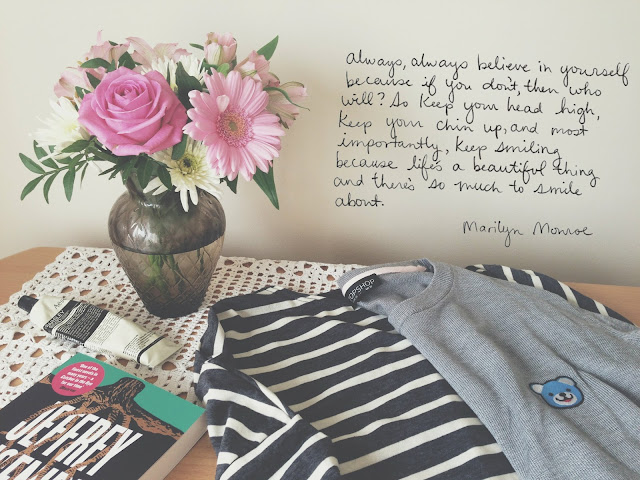 always, always believe in yourself
because if you don't, then who
will? So keep your head high,
keep your chin up, and most
importantly, keep smiling
because life's a beautiful thing
and there's so much to smile
about.
Marilyn Monroe
OPSHOP
JEFFREY